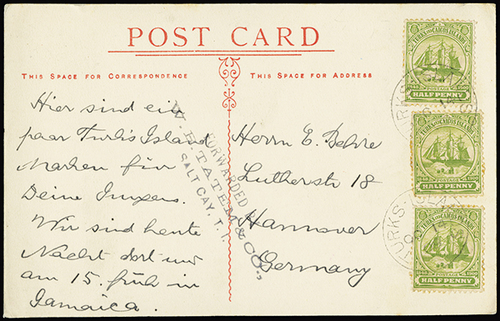 POST CARD
THIS SPACE FOR CORRESPONDENCE
THIS SPACE FOR ADDRESS
Hier sind ein
paar Turk's Island
Marken für
Deine Jungens.
Wir sind heute
Nacht dort und
am 15. früh in
Jamaica.
FORWARDED
TATEM & CO.,
SALT CAY, T. I.
Herrn E. Dehre
Lutherstr 18
Hannover
Germany
TURKS AND CAICOS ISLANDS
HALF PENNY
TURKS AND CAICOS ISLANDS
HALF PENNY
TURKS AND CAICOS ISLANDS
HALF PENNY